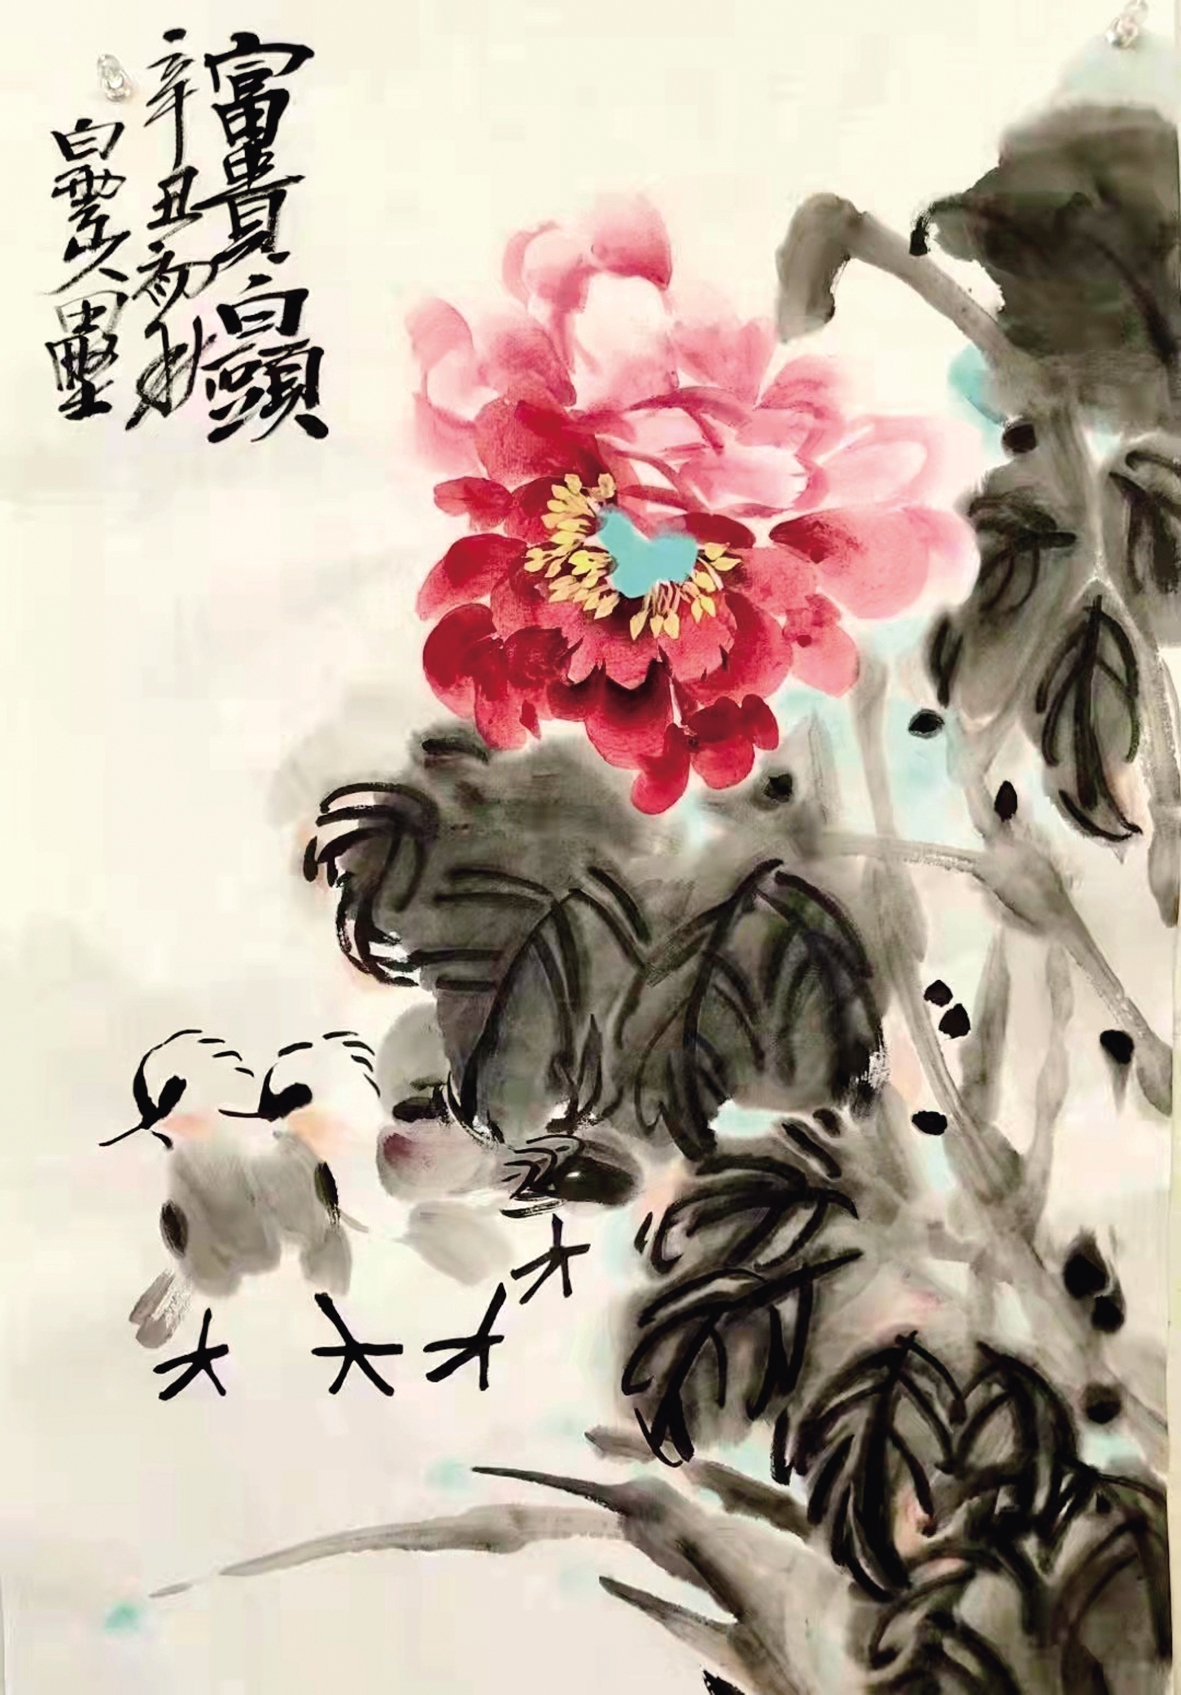 富貴白頭
辛丑初秋
白雲人墨